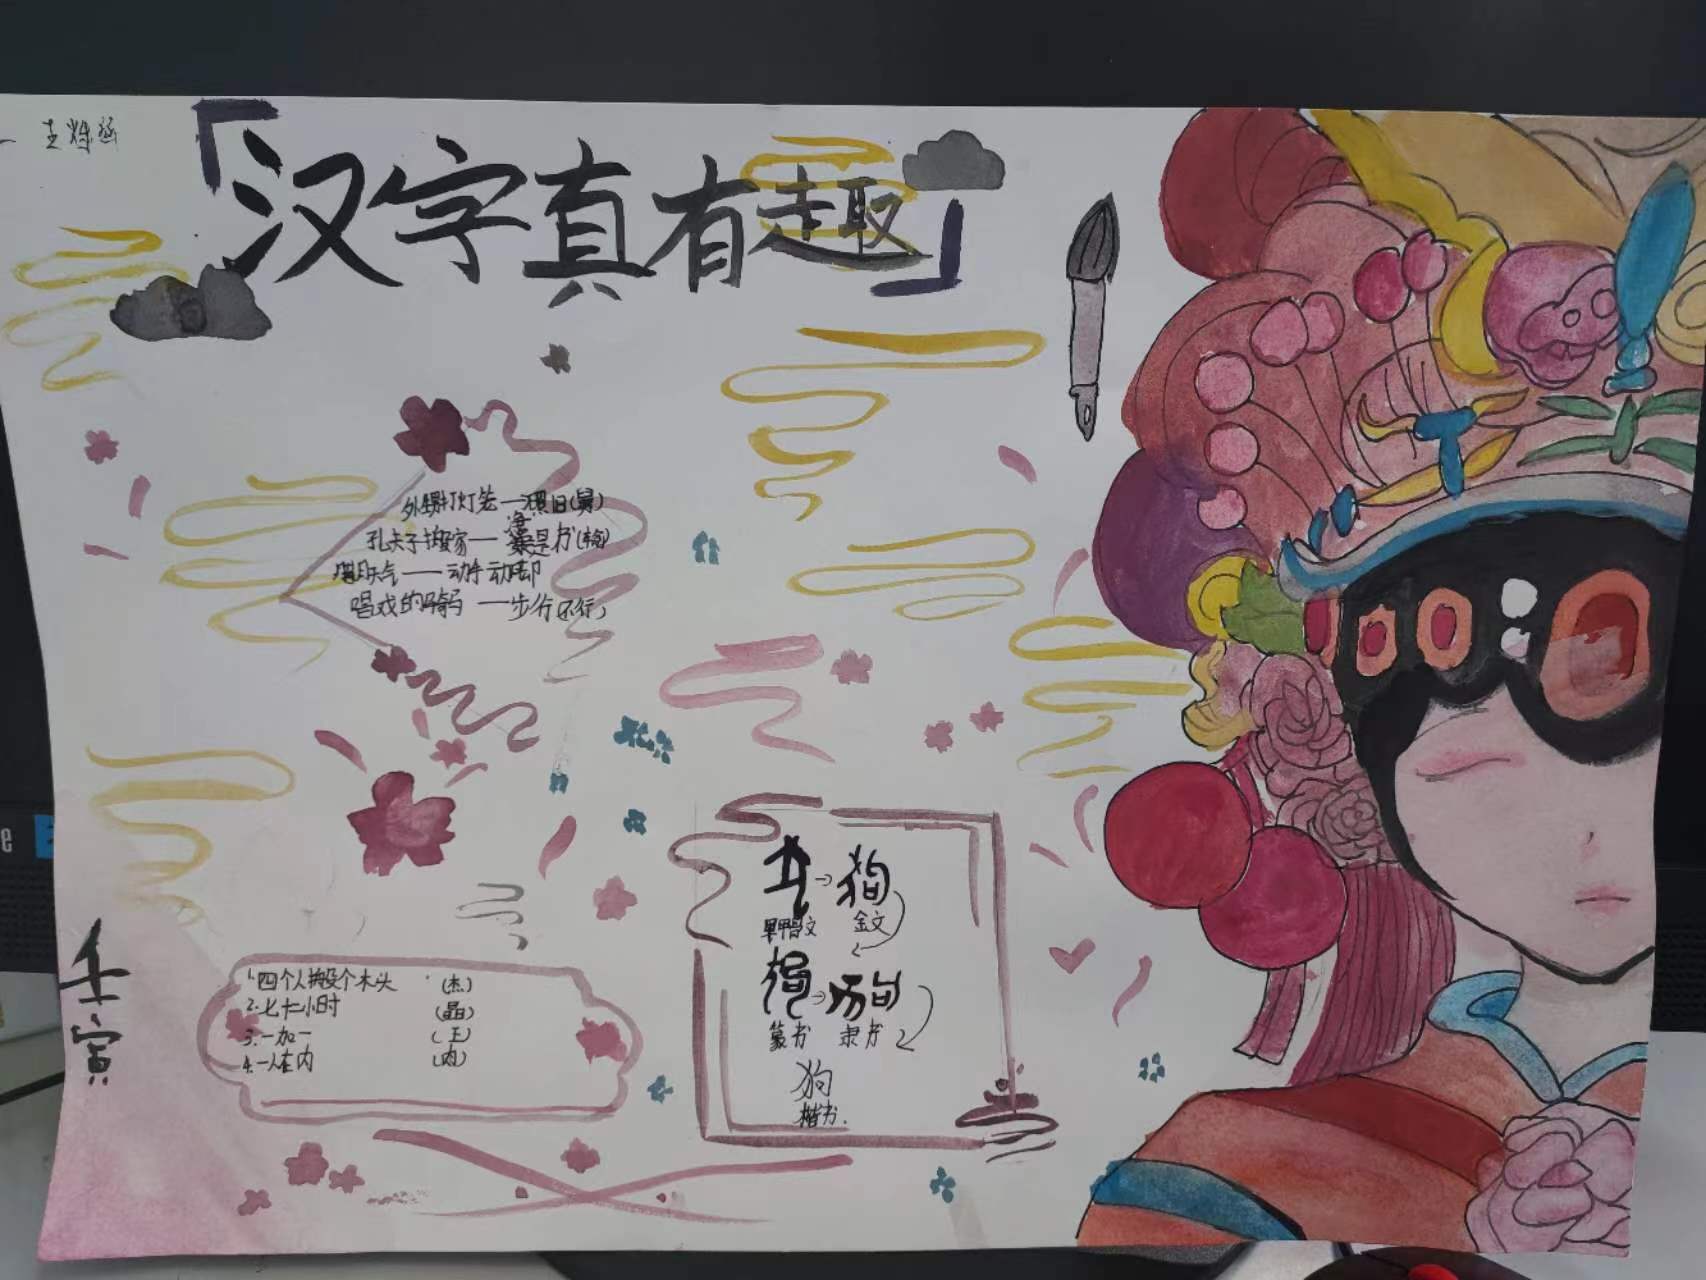 「汉字真有趣」
外甥打灯笼一照旧(舅)
孔夫子搬家——净是书(输)
动手动脚
唱戏的骑马——步行(不行)
1.四个人搬个木头 (杰)
2.七十二小时 (晶)
3.一加一 (王)
4.一人在内 (肉)
狗
甲骨文 金文
篆书 隶书
狗
楷书.
壬寅